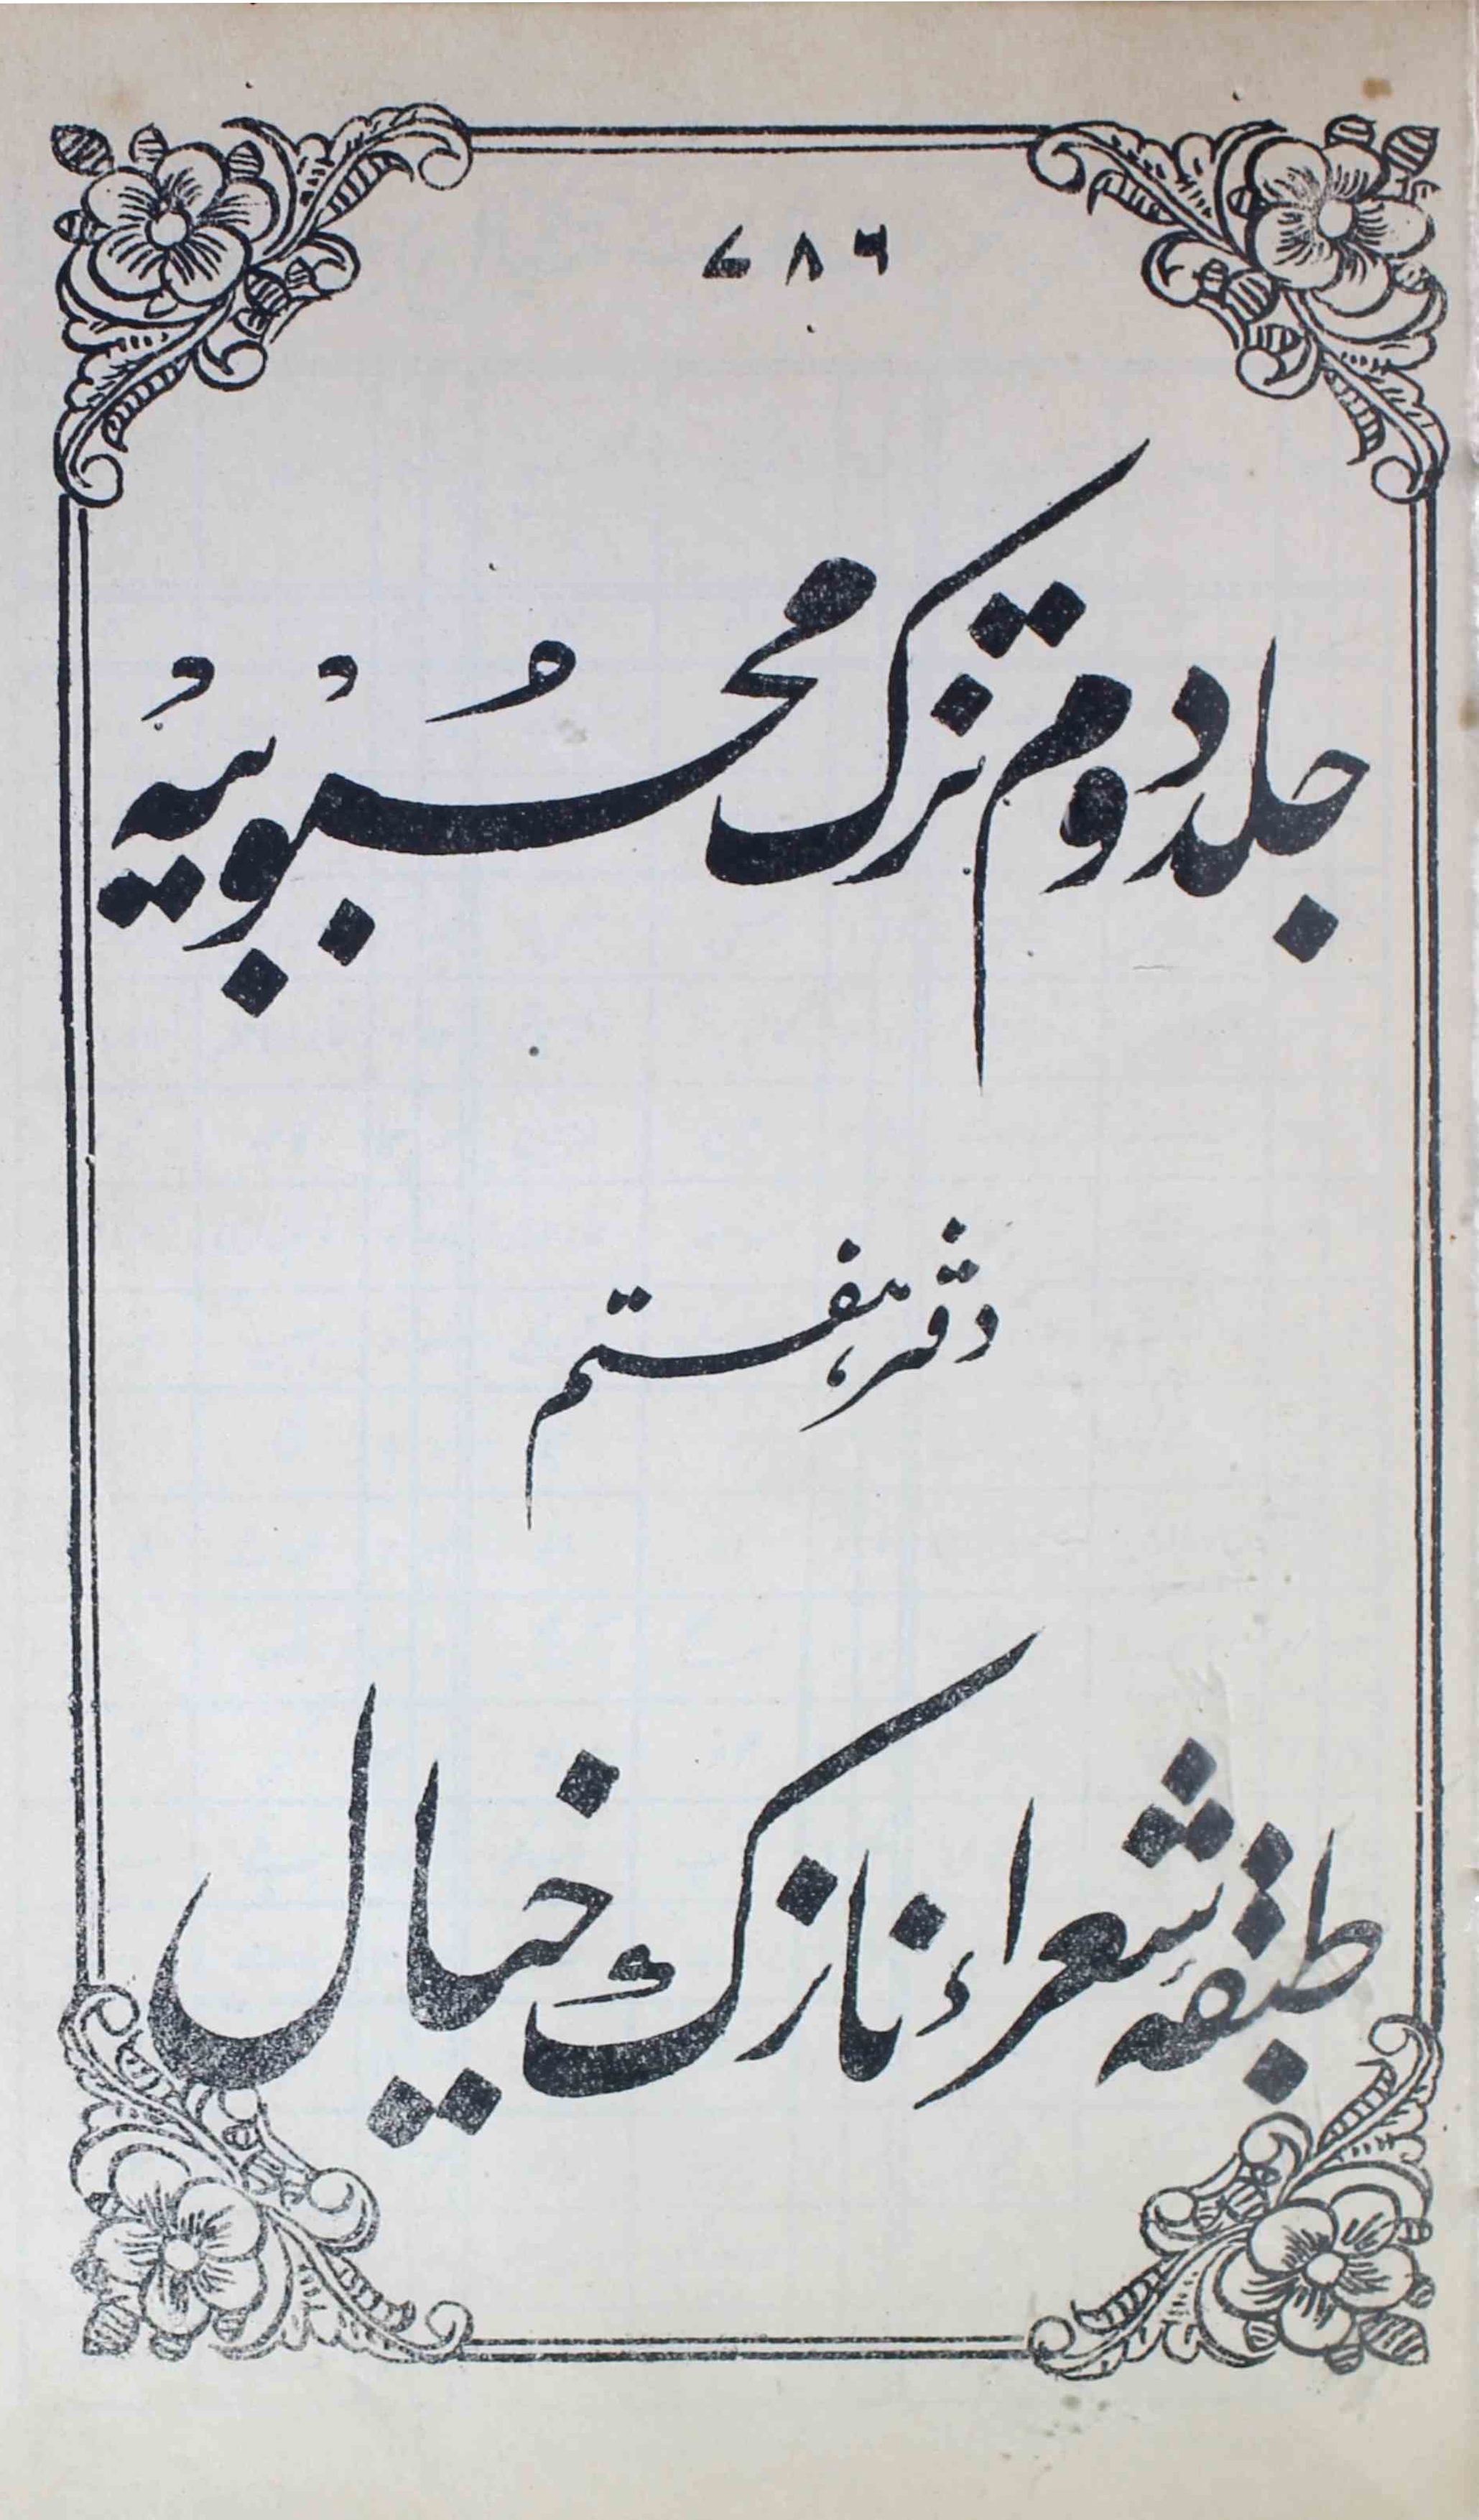 ۷۸۶
جلد دوم تزک محبوبیہ
دفتر ہفتم
طبقۂ شعراء نازک خیال